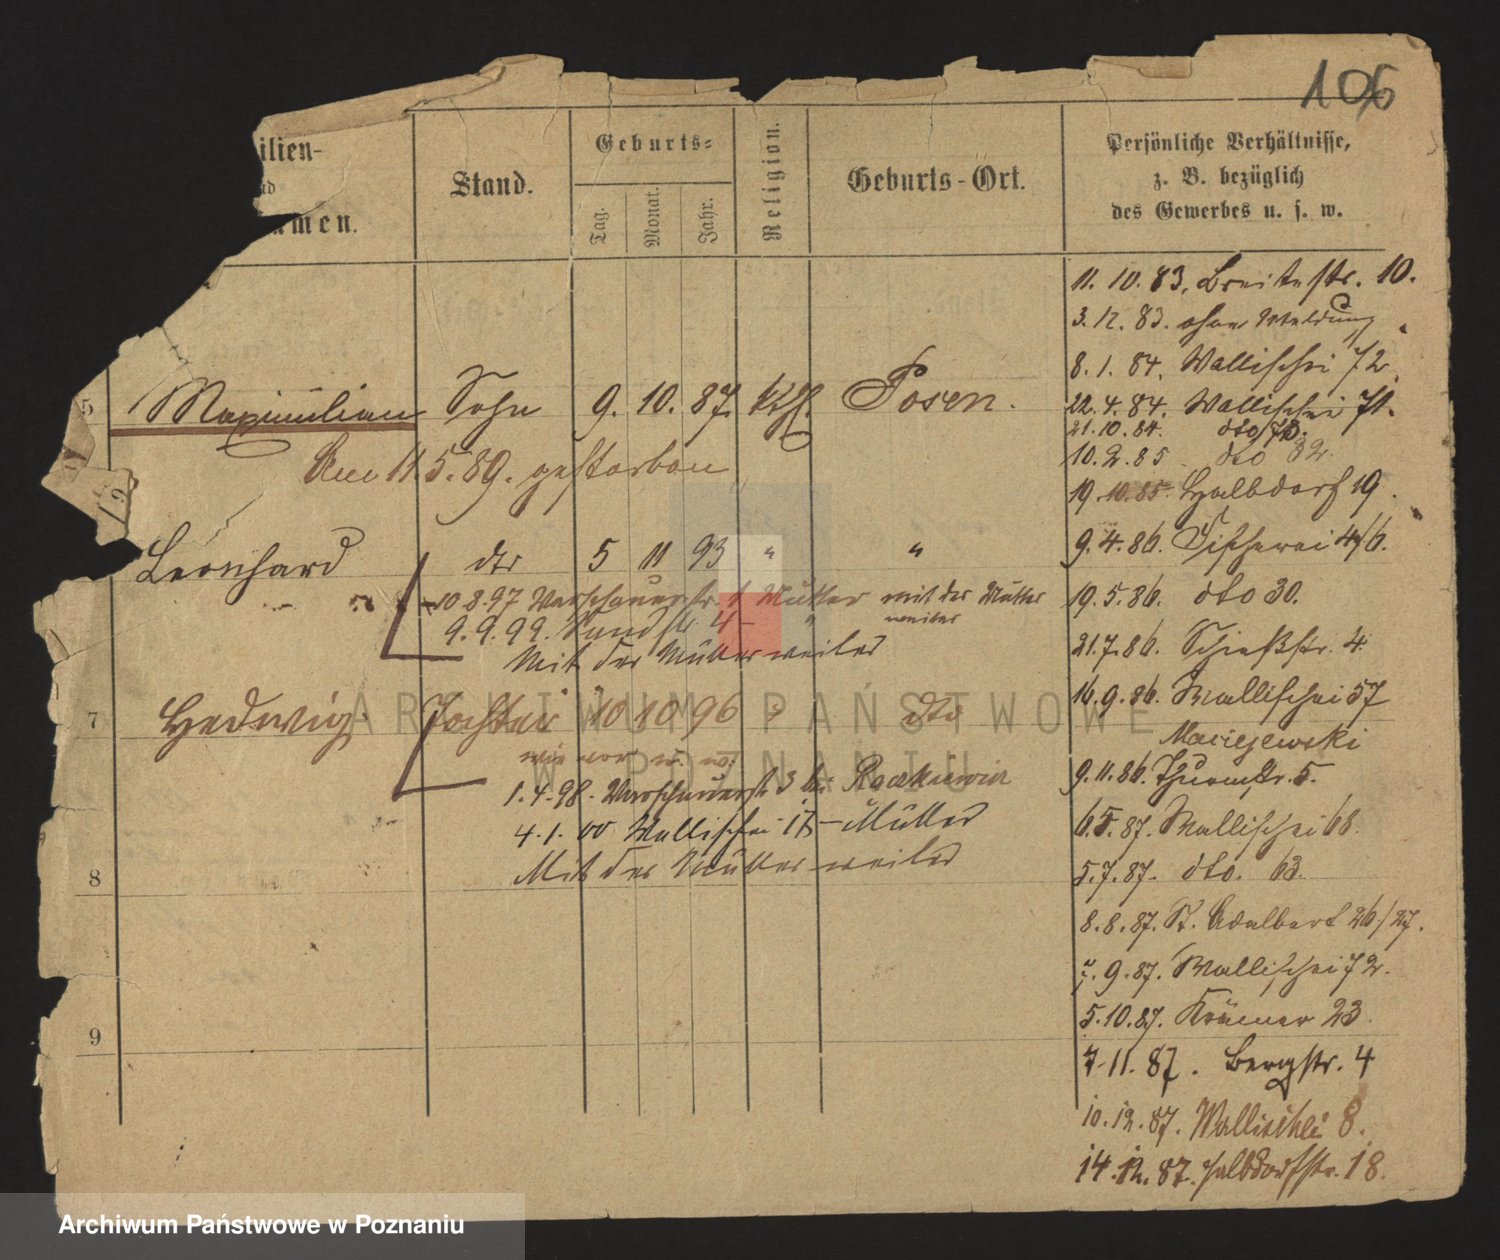 106
ilien-
nd
amen.
Stand.
Geburts=
Tag.
Monat.
Jahr.
Religion.
Geburts-Ort.
Persönliche Verhältnisse,
z. B. bezüglich
des Gewerbes u. s. w.
11. 10. 83. Breitestr. 10.
3. 12. 83. ohne Meldung
8. 1. 84. Wallischei 72
5 Maximilian Sohn 9. 10. 87. kth. Posen.
22. 4. 84. Wallischei 71.
21. 10. 84. dto 73.
10. 2. 85 dto 32.
Am 11 5. 89. gestorben
19. 10. 85. Halbdorf 19.
Leonhard dto 5 11 93 " "
9. 4. 86. Fischerei 4/6.
10 8.97 Warschauerstr. Mutter mit der Mutter
weiter
19. 5. 86. dto 30.
9. 9. 99.
Mit der Mutter weiter
21. 7. 86. Schießstr. 4
7 Hedwig Tochter 10 10 96 dto
16. 9. 86. Wallischei 57
Maciejewski
wie vor
1. 4. 98. Warschauerst 3 bei
9. 11. 86. Thurmstr. 5.
4. 1. 00 Wallischei 17 - Mutter
6. 5. 87. Wallischei 68.
Mit der Mutter weiter
8
5. 7. 87. dto. 63.
8. 8. 87. St. Adalbert 26/27.
7. 9. 87. Wallischei 72.
5. 10. 87. Krämer 23.
9
7. 11. 87. Bergstr. 4
10. 12. 87. Wallischei 8.
14. 12. 87. Halbdorfstr. 18.
ARCHIWUM PAŃSTWOWE
W POZNANIU
Archiwum Państwowe w Poznaniu